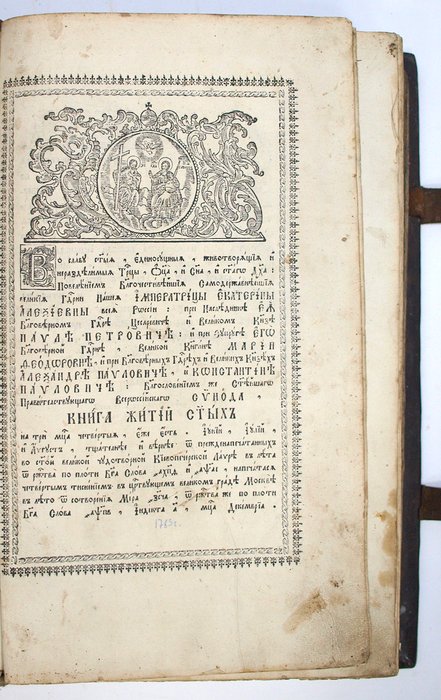 Во славу ст҃ыѧ, єдиносꙋщныѧ, животворѧщїѧ и҆
нераздѣлимыѧ Трⷪ҇цы, Ѻ҆ц҃а, и҆ Сн҃а, и҆ ст҃агѡ Дх҃а:
Повелѣнїемъ Благочестивѣйшїѧ Самодержавнѣйшїѧ
великїѧ Гдⷭ҇рни Нашеѧ ІМПЕРАТРИЦЫ ЕКАТЕРИНЫ
АЛЕѮІЕВНЫ всеѧ Рѡссїи: при Наслѣдникѣ ЕѦ
Благовѣрномъ Гдⷭ҇рѣ Цесаревичѣ и҆ Великомъ Кнѕѣ
ПАѴЛѢ ПЕТРОВИЧѢ: и҆ при Сꙋпрꙋгѣ ЕГѠ
Благовѣрной Гдⷭ҇рнѣ, Великой Кнѧгинѣ МАРІИ
ѲЕОДОРОВНѢ, и҆ при Благовѣрныхъ Гдⷭ҇рѣхъ и҆ Великихъ Кнѕѣхъ
АЛЕѮАНДРѢ ПАѴЛОВИЧѢ, и҆ КѠНСТАНТІНѢ
ПАѴЛОВИЧѢ: Благословенїемъ же Ст҃ѣйшагѡ
Правителствꙋющагѡ Всерѡссїйскагѡ СѴНОДА,
КНИГА ЖИТІЙ СТ҃ЫХЪ
на три мцⷭ҇ы четвертыѧ, є҆же є҆сть. І҆ꙋнїй, І҆ꙋлїй,
и҆ А҆ѵгꙋстъ, тщателнѣ и҆ вѣрнѡ ѿ преждепечатанныхъ
во ст҃ой великой чꙋдотворной Кїевопечерской Лаѵрѣ въ лѣта
ѿ рж҇тва по плоти Бг҃а Слова напечатасѧ
четвертымъ тисненїемъ въ црⷭ҇твꙋющемъ великомъ градѣ Москвѣ
въ лѣто ѿ сотворенїѧ Мїра ѿ рж҇тва же по плоти
Бг҃а Слова І҆ндїкта мцⷭ҇а Декемврїа,